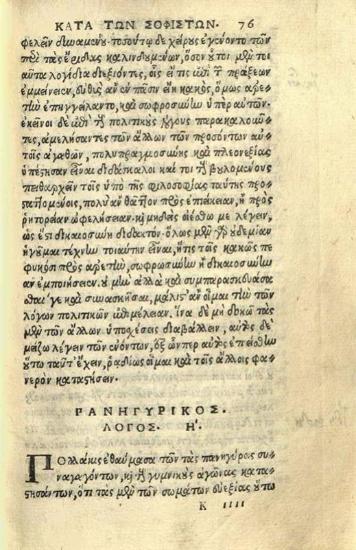 ΚΑΤΑ ΤΩΝ ΣΟΦΙΣΤΩΝ. 76
φελεῖν δυναμένων· τοσούτῳ δὲ χείρους ἐγένοντο τῶν
περὶ τὰς ἔριδας καλινδουμένων, ὅσον οὗτοι μὲν τοι
αῦτα λογίδια διεξιόντες, οἷς εἴ τις ἐπὶ τῶν πράξεων
ἐμμείνειεν, εὐθὺς ἂν ἐν πᾶσιν εἴη κακοῖς, ὅμως ἀρε
τὴν ἐπηγγείλαντο, καὶ σωφροσύνην περὶ αὐτῶν·
ἐκεῖνοι δὲ ἐπὶ τοὺς πολιτικοὺς λόγους παρακαλοῦν
τες, ἀμελήσαντες τῶν ἄλλων τῶν προσόντων αὐ
τοῖς ἀγαθῶν, πολυπραγμοσύνης καὶ πλεονεξίας
ὑπέστησαν εἶναι διδάσκαλοι· καί τοι τοὺς βουλομένους
πειθαρχεῖν τοῖς ὑπὸ τῆς φιλοσοφίας ταύτης προς
ταττομένοις, πολὺ ἂν θᾶττον πρὸς ἐπιείκειαν, ἢ πρὸς
ῥητορείαν ὠφελήσειεν. καὶ μηδεὶς οἰέσθω με λέγειν,
ὡς ἔστι δικαιοσύνη διδακτόν· ὅλως μὲν γὰρ οὐδεμίαν
ἡγοῦμαι τέχνην τοιαύτην εἶναι, ἥτις τοῖς κακῶς πε
φυκόσι πρὸς ἀρετὴν, σωφροσύνην ἢ δικαιοσύνην
ἂν ἐμποιήσειεν· οὐ μὴν ἀλλὰ καὶ συμπαρασκευάσα
σθαί γε καὶ συνασκῆσαι, μάλιστ' ἂν οἶμαι τὴν τῶν
λόγων πολιτικῶν ἐπιμέλειαν. ἵνα δὲ μὴ δοκῶ τὰς
μὲν τῶν ἄλλων ὑποσχέσεις διαβάλλειν, αὐτὸς δὲ
μείζω λέγειν τῶν ἐνόντων, ἐξ ὧν περ αὐτὸς ἐπείσθην
οὕτω ταῦτ' ἔχειν, ῥαδίως οἶμαι καὶ τοῖς ἄλλοις φα
νερὸν καταστήσειν.
ΠΑΝΗΓΥΡΙΚΟΣ.
ΛΟΓΟΣ Η'.
Πολλάκις ἐθαύμασα τῶν τὰς πανηγύρεις συν
αγαγόντων, καὶ τοὺς γυμνικοὺς ἀγῶνας κατα
στησάντων, ὅτι τὰς μὲν τῶν σωμάτων εὐεξίας οὕτω
Κ ΙΙΙΙ